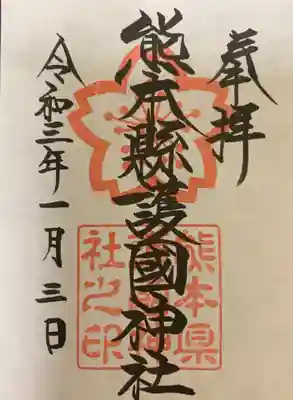 奉拝
熊本縣護國神社
令和三年一月三日
熊本県
社之印